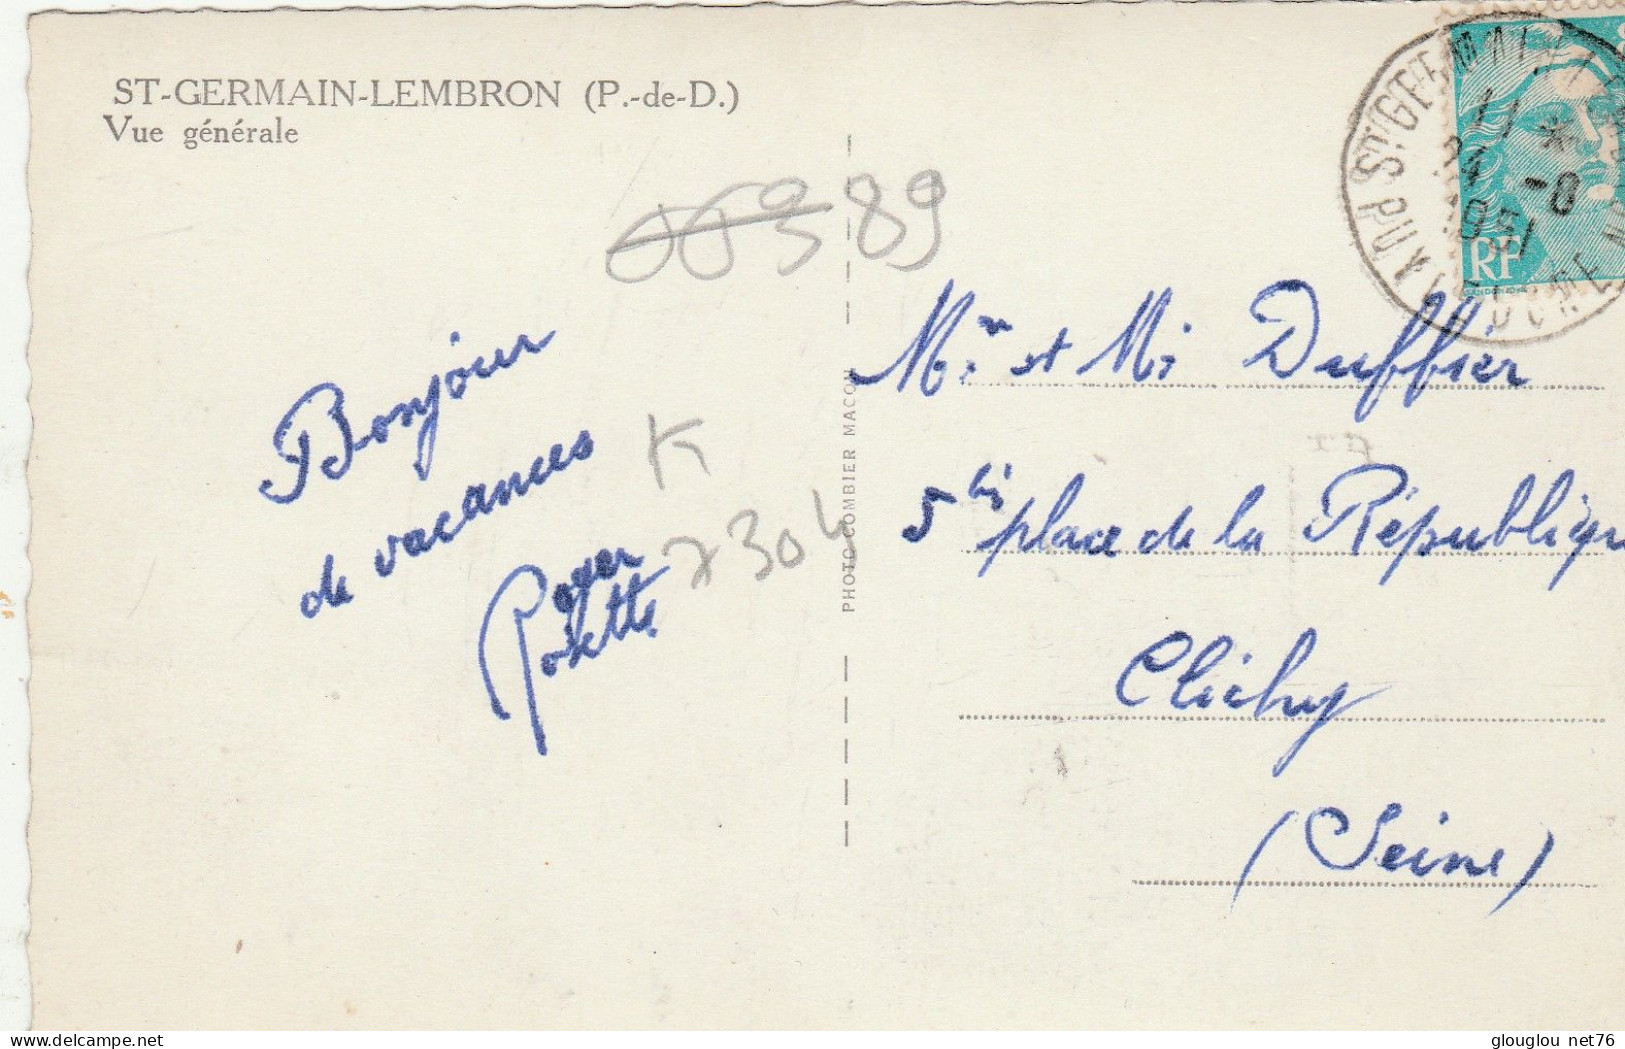 ST-GERMAIN-LEMBRON (P.-de-D.)
Vue générale
389
Bonjour
de vacances
Roger
Rosette
K
304
PHOTO COMBIER MACON
Mr et Mme Duffier
5 bis place de la République
Clichy
(Seine)
ST GERMAIN LEMBRON
PUY DE DOME
11 *
-8
1951
RF
GANDON
delcampe.net
glouglou net76